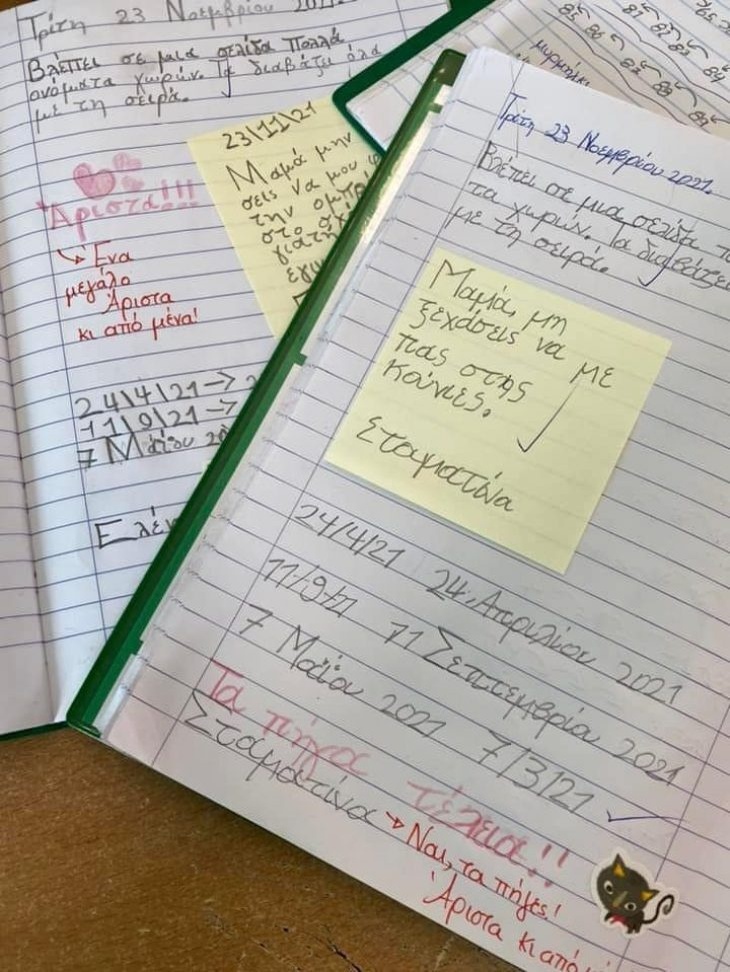 Τρίτη 23 Νοεμβρίου
Βλέπει σε μια σελίδα πολλά
ονόματα χωρών. Τα διαβάζει όλα
με τη σειρά.
23\11\21
Μαμά μην
σεις να μου
την ομπρ
στο σχ
γιατη
εγιν
Άριστα!!!
Ένα
μεγάλο
Άριστα
κι από μένα!
24\4\21 →
11\9\21 →
7 Μαΐου 20
Ελέν
85 86
87 87
μυρμήγκι
Τρίτη 23 Νοεμβρίου 2021.
Βλέπει σε μια σελίδα
τα χωρών. Τα διαβάζει
με τη σειρά.
Μαμά, μη
ξεχάσεις να με
πας στης
κούνιες.
Σταματίνα
24/4/21 24 Απριλίου 2021
11/9/21 11 Σεπτεμβρία 2021
7 Μαΐου 2021 7/3/21
Τα πήγας τέλεια!!
Σταματίνα
→ Ναι, τα πήγες!
Άριστα κι από